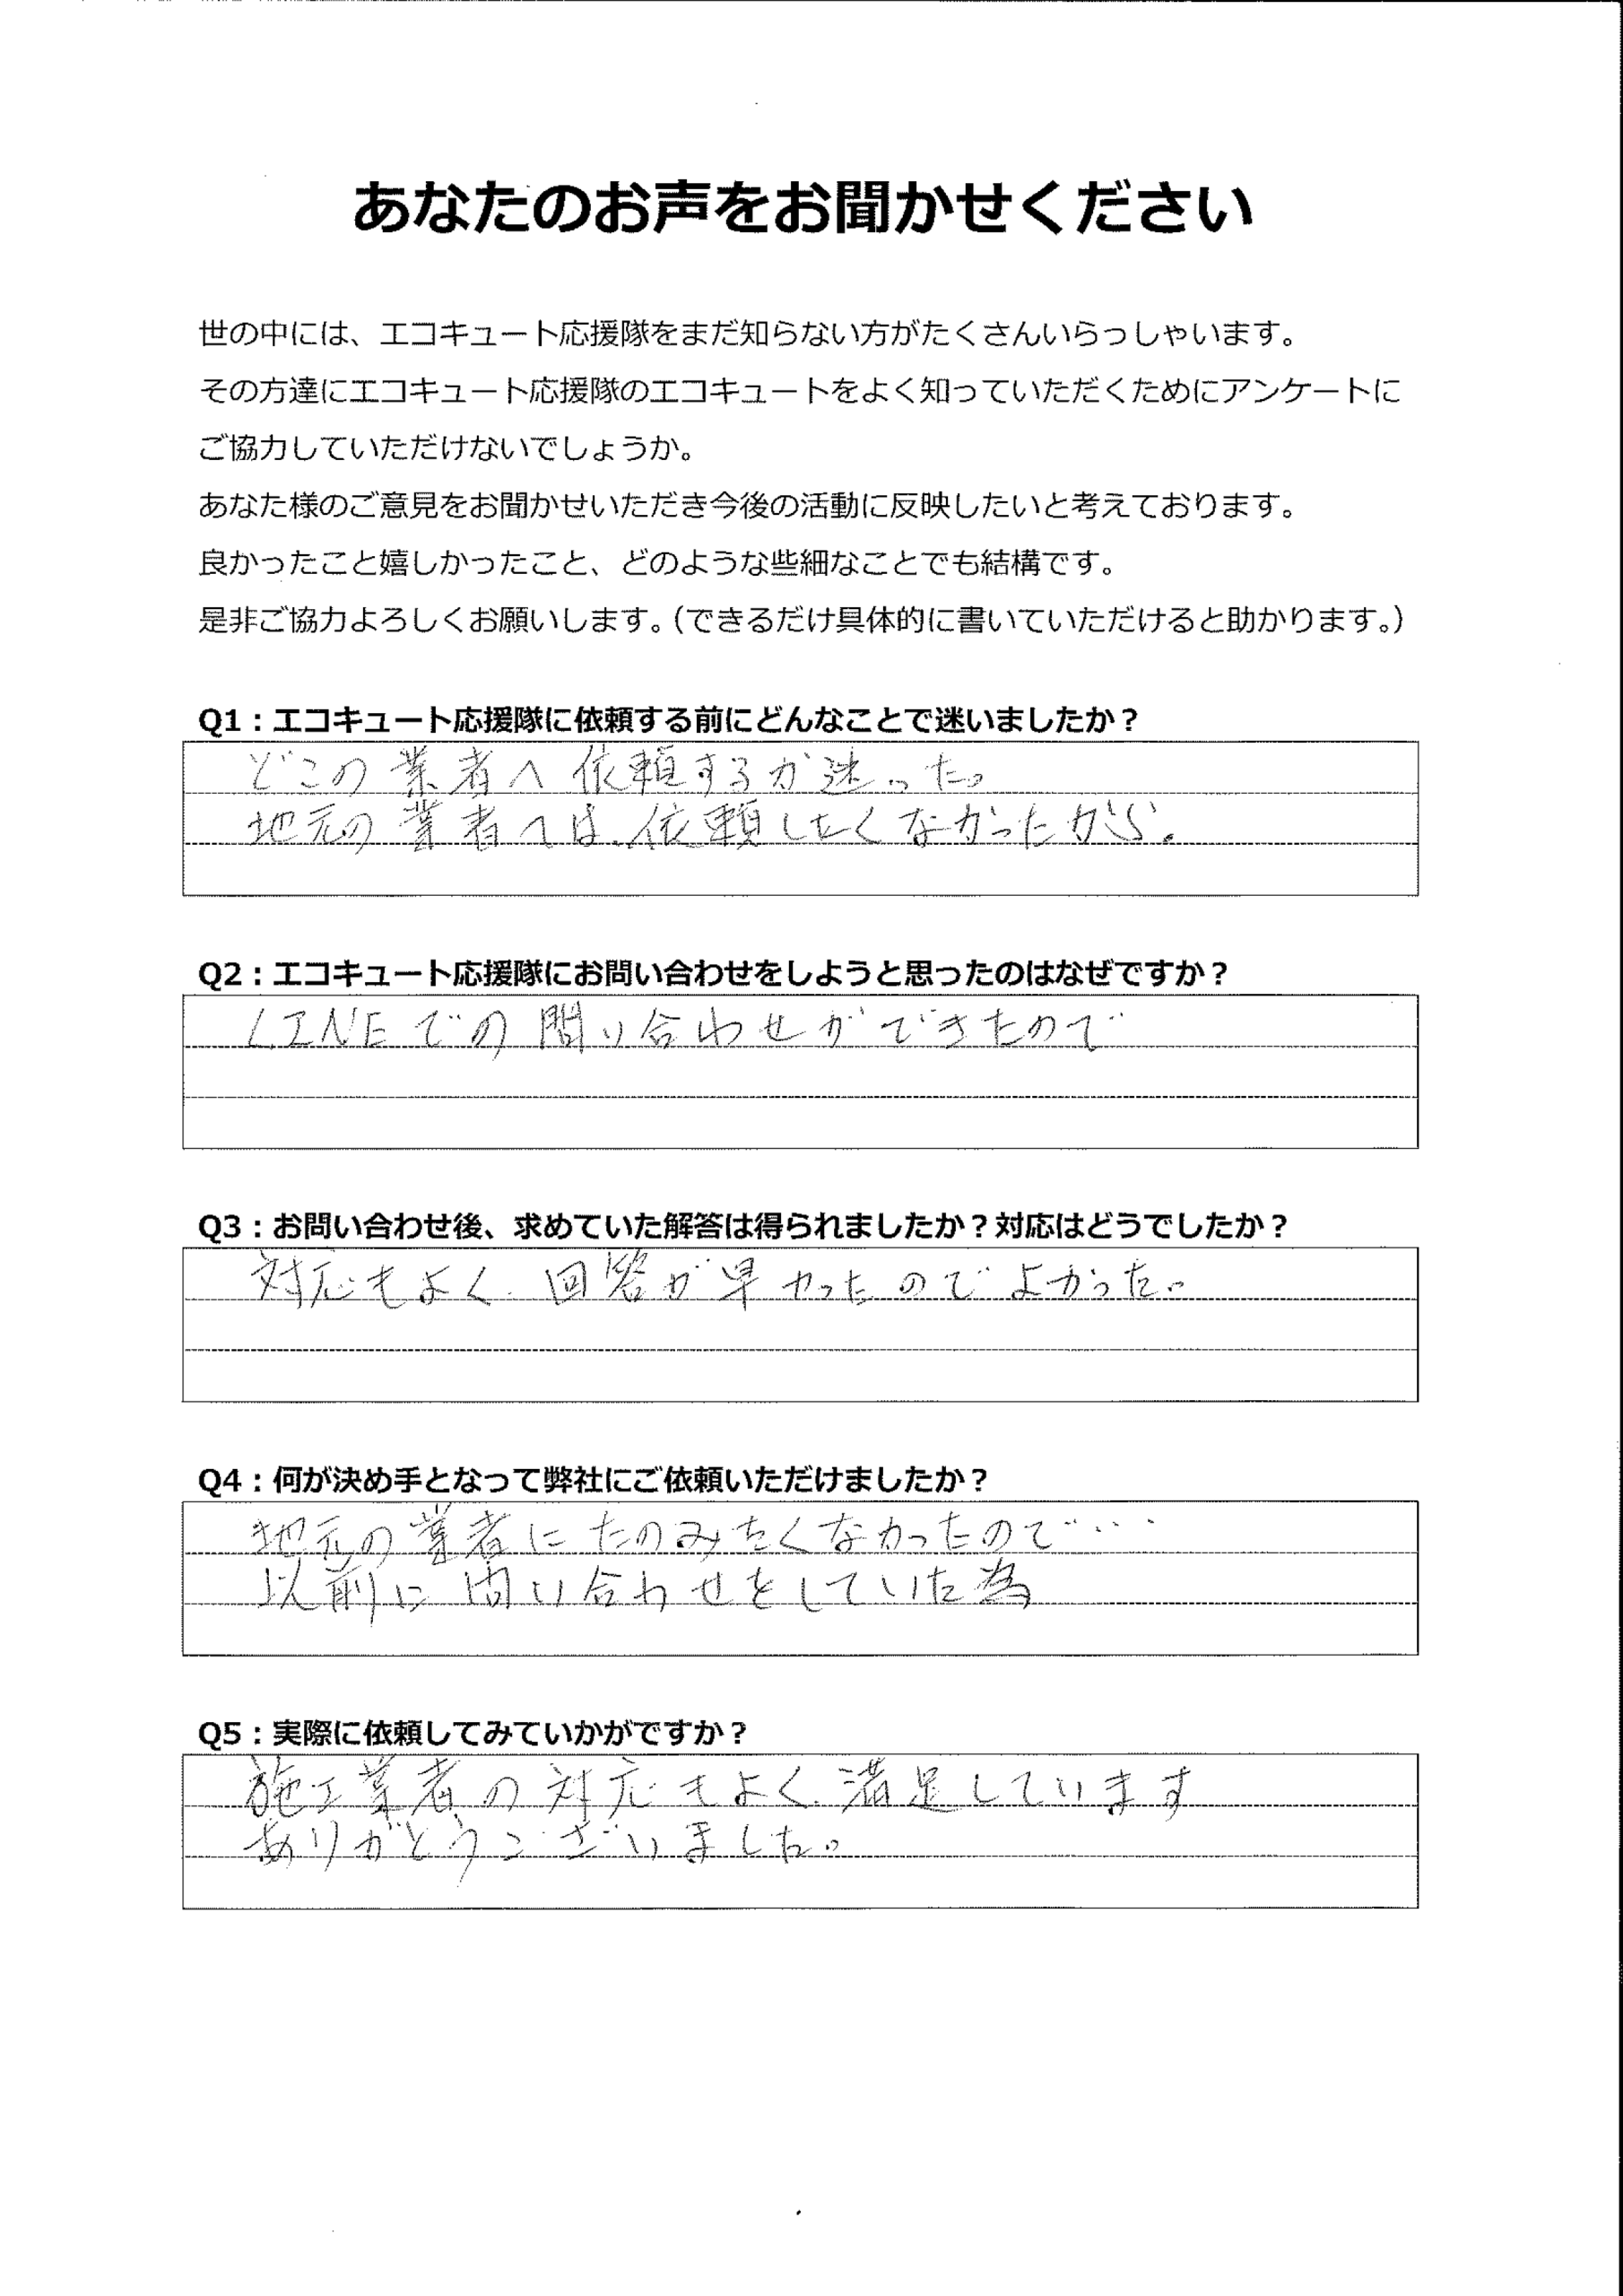 あなたのお声をお聞かせください
世の中には、エコキュート応援隊をまだ知らない方がたくさんいらっしゃいます。
その方達にエコキュート応援隊のエコキュートをよく知っていただくためにアンケートに
ご協力していただけないでしょうか。
あなた様のご意見をお聞かせいただき今後の活動に反映したいと考えております。
良かったこと嬉しかったこと、どのような些細なことでも結構です。
是非ご協力よろしくお願いします。（できるだけ具体的に書いていただけると助かります。）
Q1：エコキュート応援隊に依頼する前にどんなことで迷いましたか？
どこの業者へ依頼するか迷った。
地元の業者へは、依頼したくなかったから。
Q2：エコキュート応援隊にお問い合わせをしようと思ったのはなぜですか？
LINEでの問い合わせができたので
Q3：お問い合わせ後、求めていた解答は得られましたか？対応はどうでしたか？
対応もよく、回答が早かったのでよかった。
Q4：何が決め手となって弊社にご依頼いただけましたか？
地元の業者にたのみたくなかったので‥‥
以前に問い合わせをしていた為
Q5：実際に依頼してみていかがですか？
施工業者の対応もよく、満足しています
ありがとうございました。